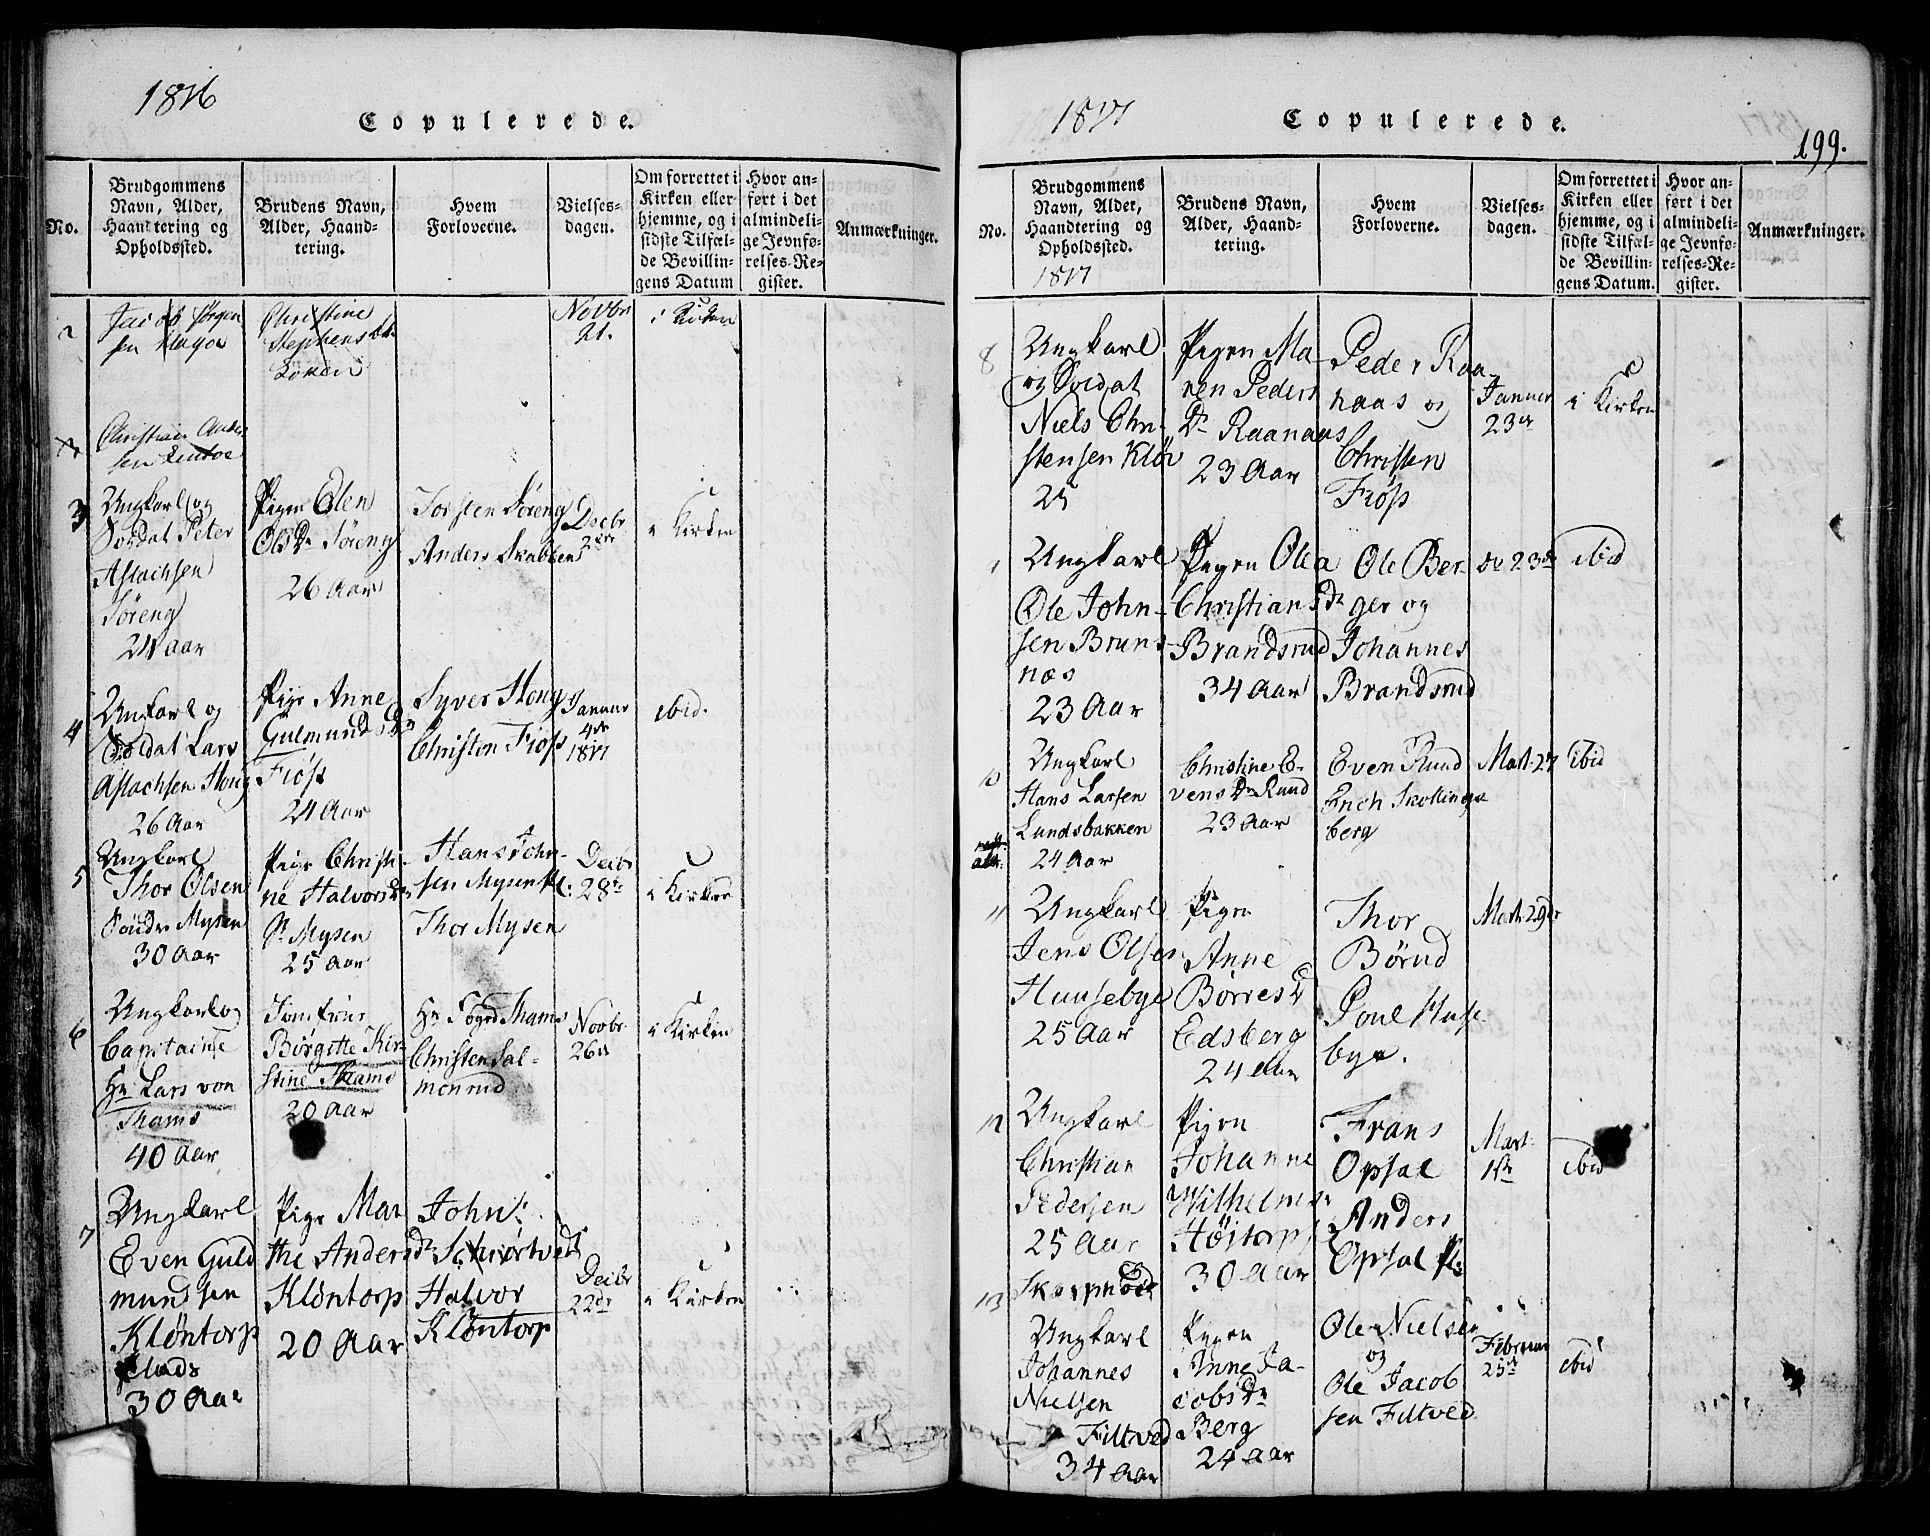 1816
Copulerede.
No.
Brudgommens
Navn, Alder,
Haandtering og
Opholdssted.
Brudens Navn,
Alder, Haand-
tering.
Hvem
Forloverne.
Vielses-
dagen.
Om forrettet i
Kirken eller
hjemme, og i
sidste Tilfæl-
de Bevillin-
gens Datum
Hvor an-
ført i det
almindeli-
ge Jevnfø-
relses-Re-
gister.
Anmærkninger.
2
Jacob Jørgen
sen
Christine
Stephensdtr
Novbr
21.
i Kirken
Christian Ander
sen
3
Ungkarl og
Soldat Peter
Aslachsen
Søreng
24 aar
Pigen Elen
Olsdr Søreng
26 Aar
Torsten Søreng
Anders
Decbr
i Kirken
4
Ungkarl og
Soldat Lars
Aslachsen Houg
26 Aar
Pige Anne
Gulmundsdr
Fiøss
24 Aar
Syver Houg
Christen Fiøss
Januar
4de
1817
ibid.
5
Ungkarl
Thor Olsen
Søndre Mysen
30 Aar
Pige Christi-
ne Halvorsdr
Mysen
25 Aar
Hans John-
sen Mysen Pl:
Thor Mysen
Decbr
28de
i Kirken
6
Ungkarl og
Capitaine
Hr Lars von
Thams
40 Aar
Jomfrue
Birgitte Kir-
stine Thams
20 Aar
Hr Foged Thams
Christen Sal-
monrud
Novbr
26de
i Kirken
7
Ungkarl
Even Guld
mundsen
Kløntorp
Plads
30 Aar
Pige Mar
the Andersdr
Kløntorp
20 Aar
John
Halvor
Kløntorp
Decbr
22de
i Kirken
1817
Copulerede.
199.
No.
Brudgommens
Navn, Alder,
Haandtering og
Opholdssted.
1817
Brudens Navn,
Alder, Haand-
tering.
Hvem
Forloverne.
Vielses-
dagen.
Om forrettet i
Kirken eller
hjemme, og i
sidste Tilfæl-
de Bevillin-
gens Datum.
Hvor an-
ført i det
almindeli-
ge Jevnfø-
relses-Re-
gister.
Anmærkninger.
8
Ungkarl
og Soldat
Niels Chri-
stensen Kløv
25
Pigen Ma-
ren Peders
Dr Raanaas
23 Aar
Peder Raa-
naas og
Christen
Fiøss
Januar
23de
i Kirken
Ungkarl
Ole John-
sen Bruns-
næs
23 Aar
Pigen Olea
Christiansdr
Brandsrud
34 Aar
Ole Ber-
ger og
Johannes
Brandsrud
23de
ibid
10
Ungkarl
Hans Larsen
Lundsbakken
24 Aar
Christine E-
vensdr Ruud
23 Aar
Even Ruud
Erich Skollings
berg
Mart: 27
ibid
11
Ungkarl
Jens Olsen
Huusebye
25 Aar
Pigen
Anne
Børresd
Edsberg
24 Aar
Thor
Børud
Poul Huse-
bye.
Mart: 29de
12
Ungkarl
Christian
Pedersen
25 Aar
Pigen
Johanne
Wilhelms
Høitorp
30 Aar
Frans
Opsal
Anders
Opsal Pl:
Mart:
1ste
ibid
13
Ungkarl
Johannes
Nielsen
Filtved
34 Aar
Pigen
Anne Ja-
cobsdr
Berg
24 Aar
Ole Nielsen
og
Ole Jacob
sen Filtved
Februar
25de
ibid